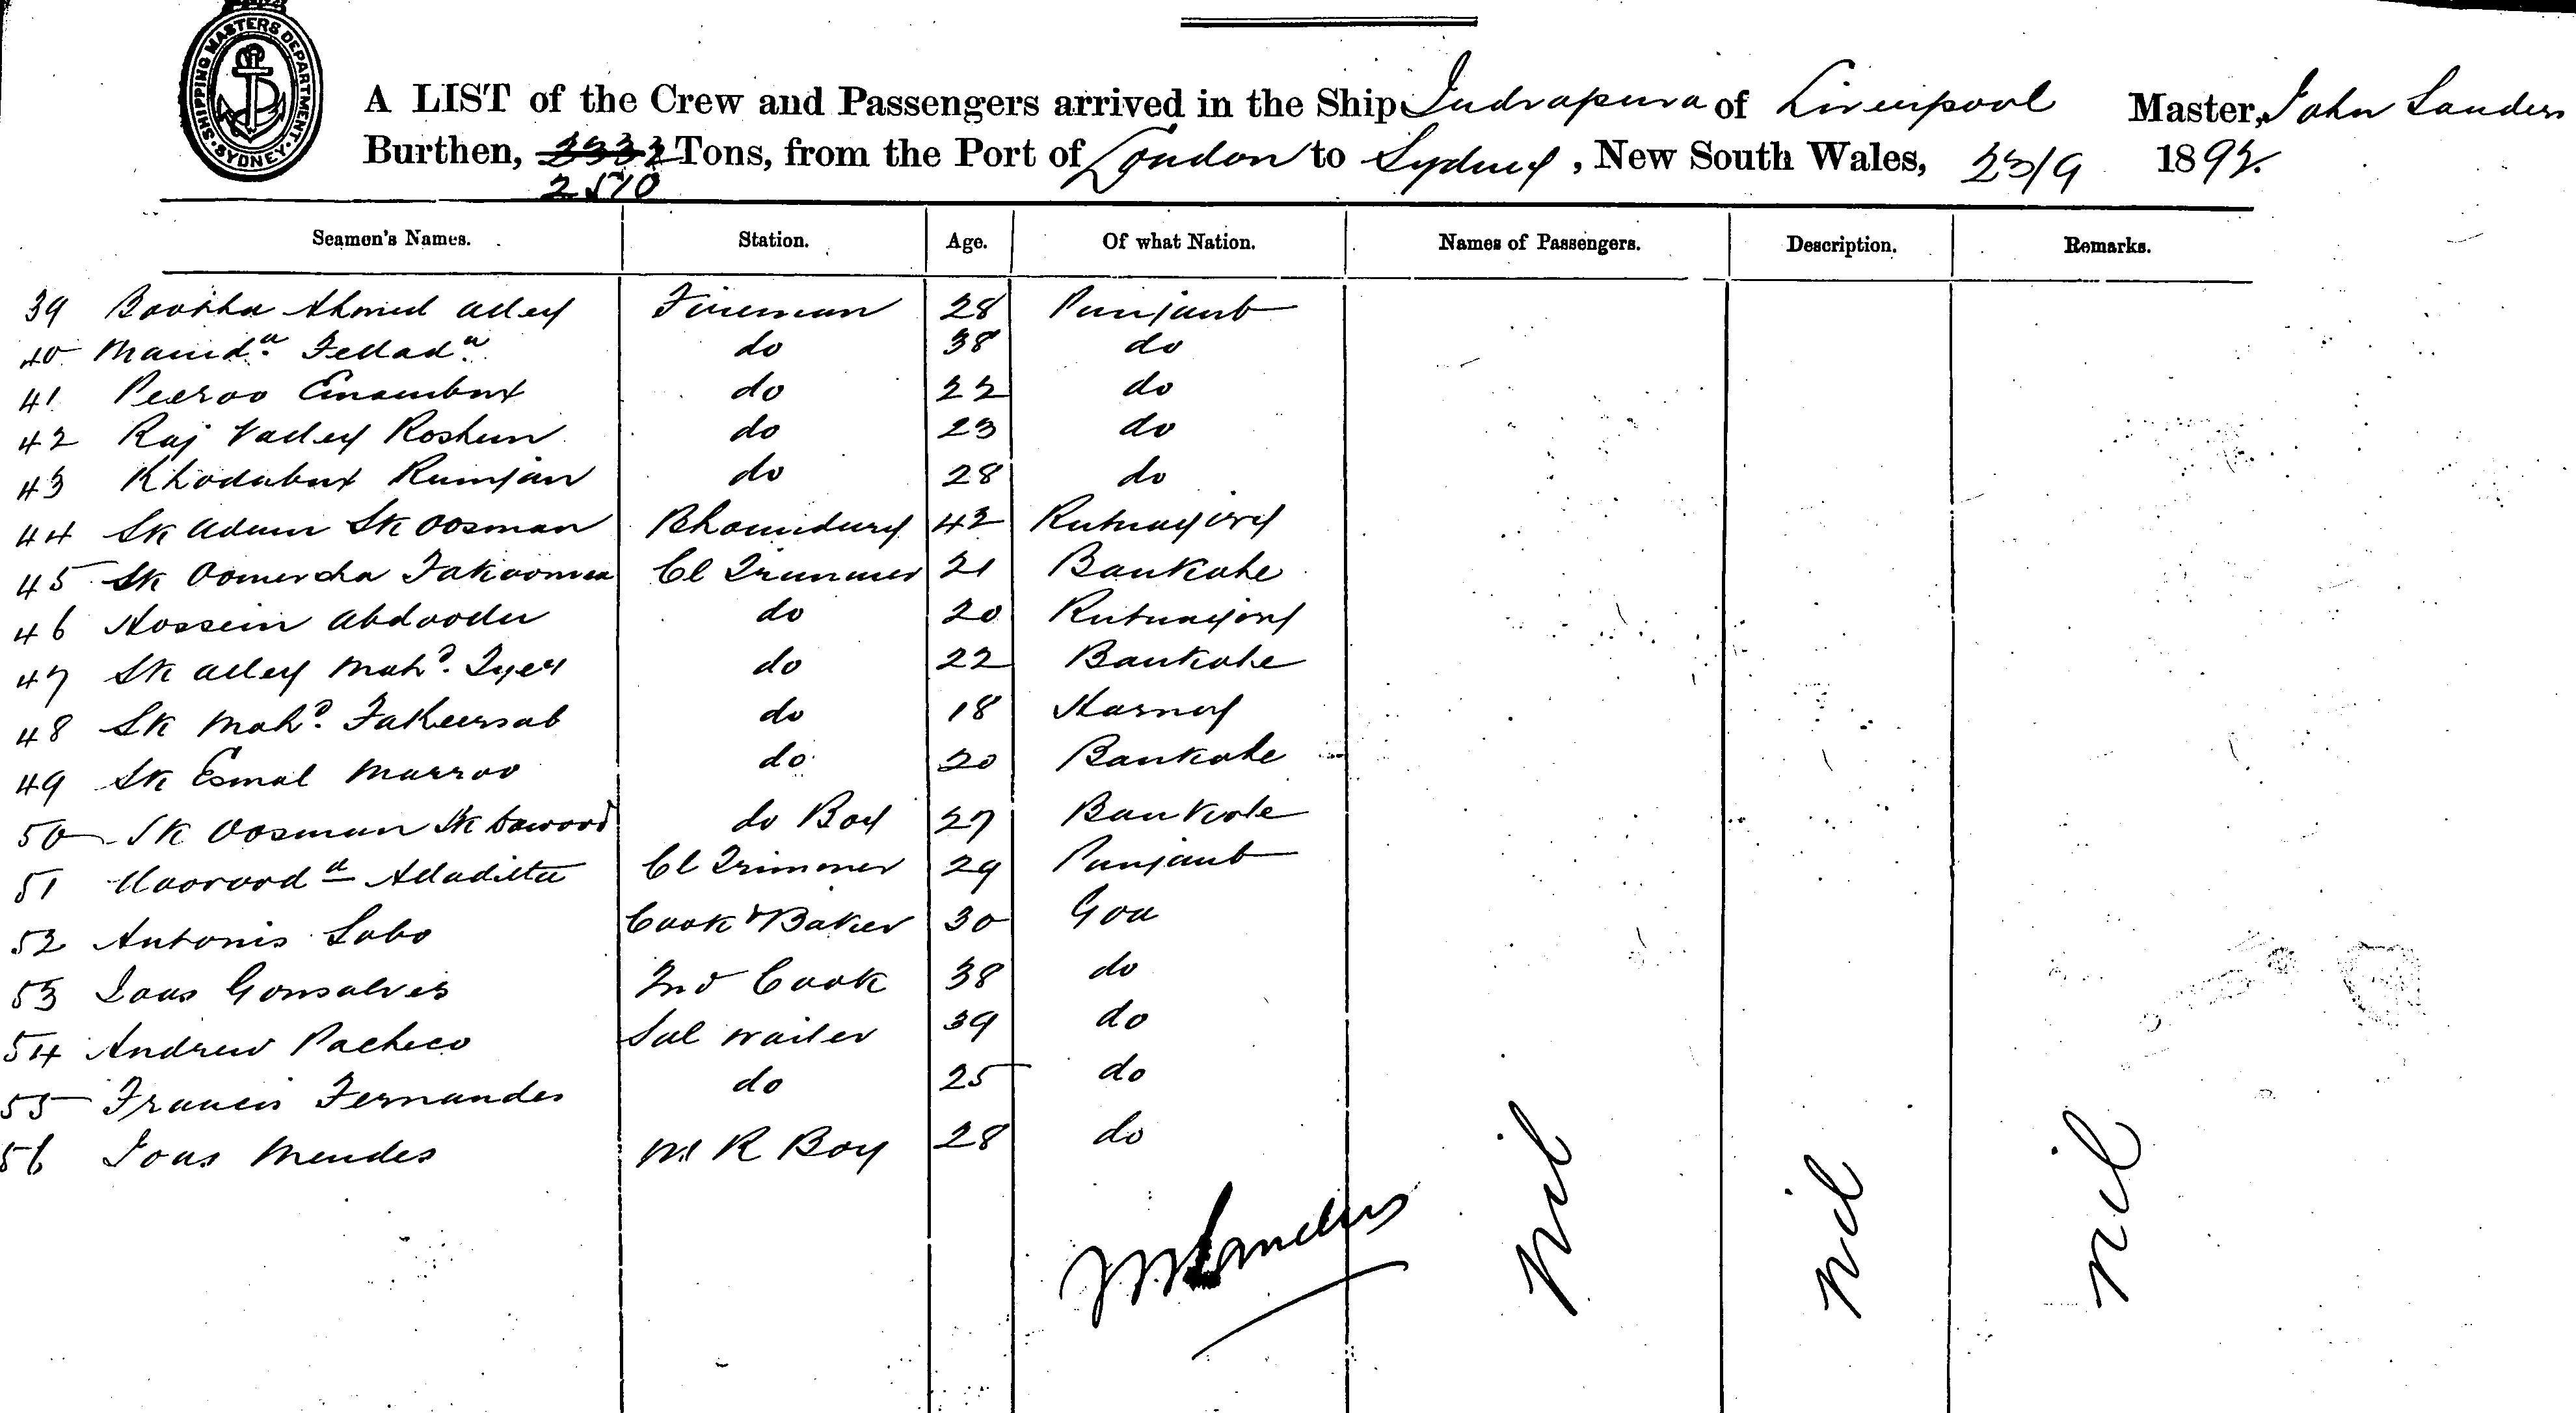 SHIPPING MASTERS DEPARTMENT · SYDNEY ·
A LIST of the Crew and Passengers arrived in the Ship Indrapura of Liverpool Master, John Sanders
Burthen, 2332 Tons, from the Port of London to Sydney, New South Wales, 23/9 1892.
2510
Seamen's Names. Station. Age. Of what Nation. Names of Passengers. Description. Remarks.
39 Bootha Ahmed Alley Fireman 28 Punjaub
40 do 38 do
41 Peeroo Emambux do 22 do
42 Raj Valley Roshun do 23 do
43 Khodabux Rumjan do 28 do
44 Sk Adum Sk Oosman 42 Rutnagiry
45 Sk Cl Trimmer 21 Bankote
46 Hossein do 20 Rutnagiry
47 Sk Alley Mahd. do 22 Bankote
48 Sk Mahd. Fakeersab do 18 Harney
49 Sk Esmal Murroo do 20 Bankote
50 Sk Oosman Sk Dawood do Boy 27 Bankote
51 Alladitta Cl Trimmer 29 Punjaub
52 Antonis Lobo Cook & Baker 30 Goa
53 Joas Gonsalves 2nd Cook 38 do
54 Andrew Pacheco Sal Waiter 39 do
55 Francis Fernandes do 25 do
56 Joas Mendes M R Boy 28 do
nil nil nil
Sanders